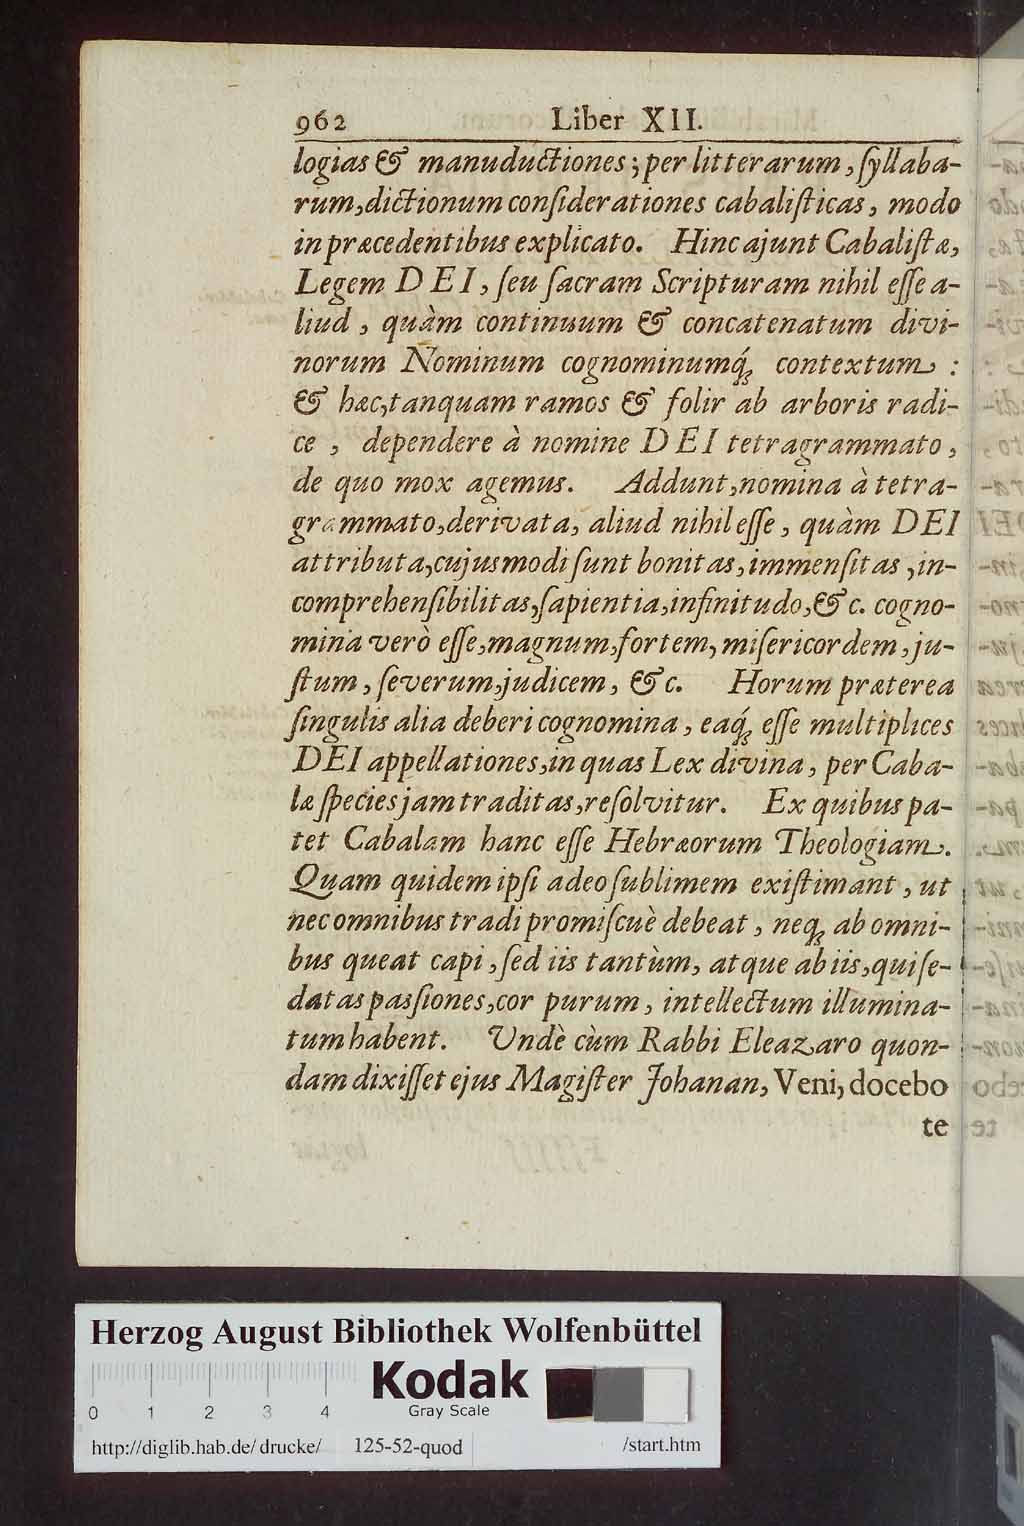 962 Liber XII.
logias & manuductiones; per litterarum, ſyllaba-
rum, dictionum conſiderationes cabaliſticas, modo
in præcedentibus explicato. Hinc ajunt Cabaliſtæ,
Legem DEI, ſeu ſacram Scripturam nihil eſſe a-
liud, quàm continuum & concatenatum divi-
norum Nominum cognominumq́; contextum :
& hæc, tanquam ramos & folir ab arboris radi-
ce, dependere à nomine DEI tetragrammato,
de quo mox agemus. Addunt, nomina à tetra-
grammato, derivata, aliud nihil eſſe, quàm DEI
attributa, cujusmodi ſunt bonitas, immenſitas, in-
comprehenſibilitas, ſapientia, infinitudo, & c. cogno-
mina verò eſſe, magnum, fortem, miſericordem, ju-
ſtum, ſeverum, judicem, & c. Horum præterea
ſingulis alia deberi cognomina, eaq́; eſſe multiplices
DEI appellationes, in quas Lex divina, per Caba-
læ ſpecies jam traditas, reſolvitur. Ex quibus pa-
tet Cabalam hanc eſſe Hebræorum Theologiam.
Quam quidem ipſi adeo ſublimem exiſtimant, ut
nec omnibus tradi promiſcuè debeat, neq; ab omni-
bus queat capi, ſed iis tantùm, atque ab iis, qui ſe-
datas paſsiones, cor purum, intellectum illumina-
tum habent. Undè cùm Rabbi Eleazaro quon-
dam dixiſſet ejus Magiſter Johanan, Veni, docebo
te
Herzog August Bibliothek Wolfenbüttel
Kodak
Gray Scale
0 1 2 3 4
http://diglib.hab.de/drucke/ 125-52-quod /start.htm